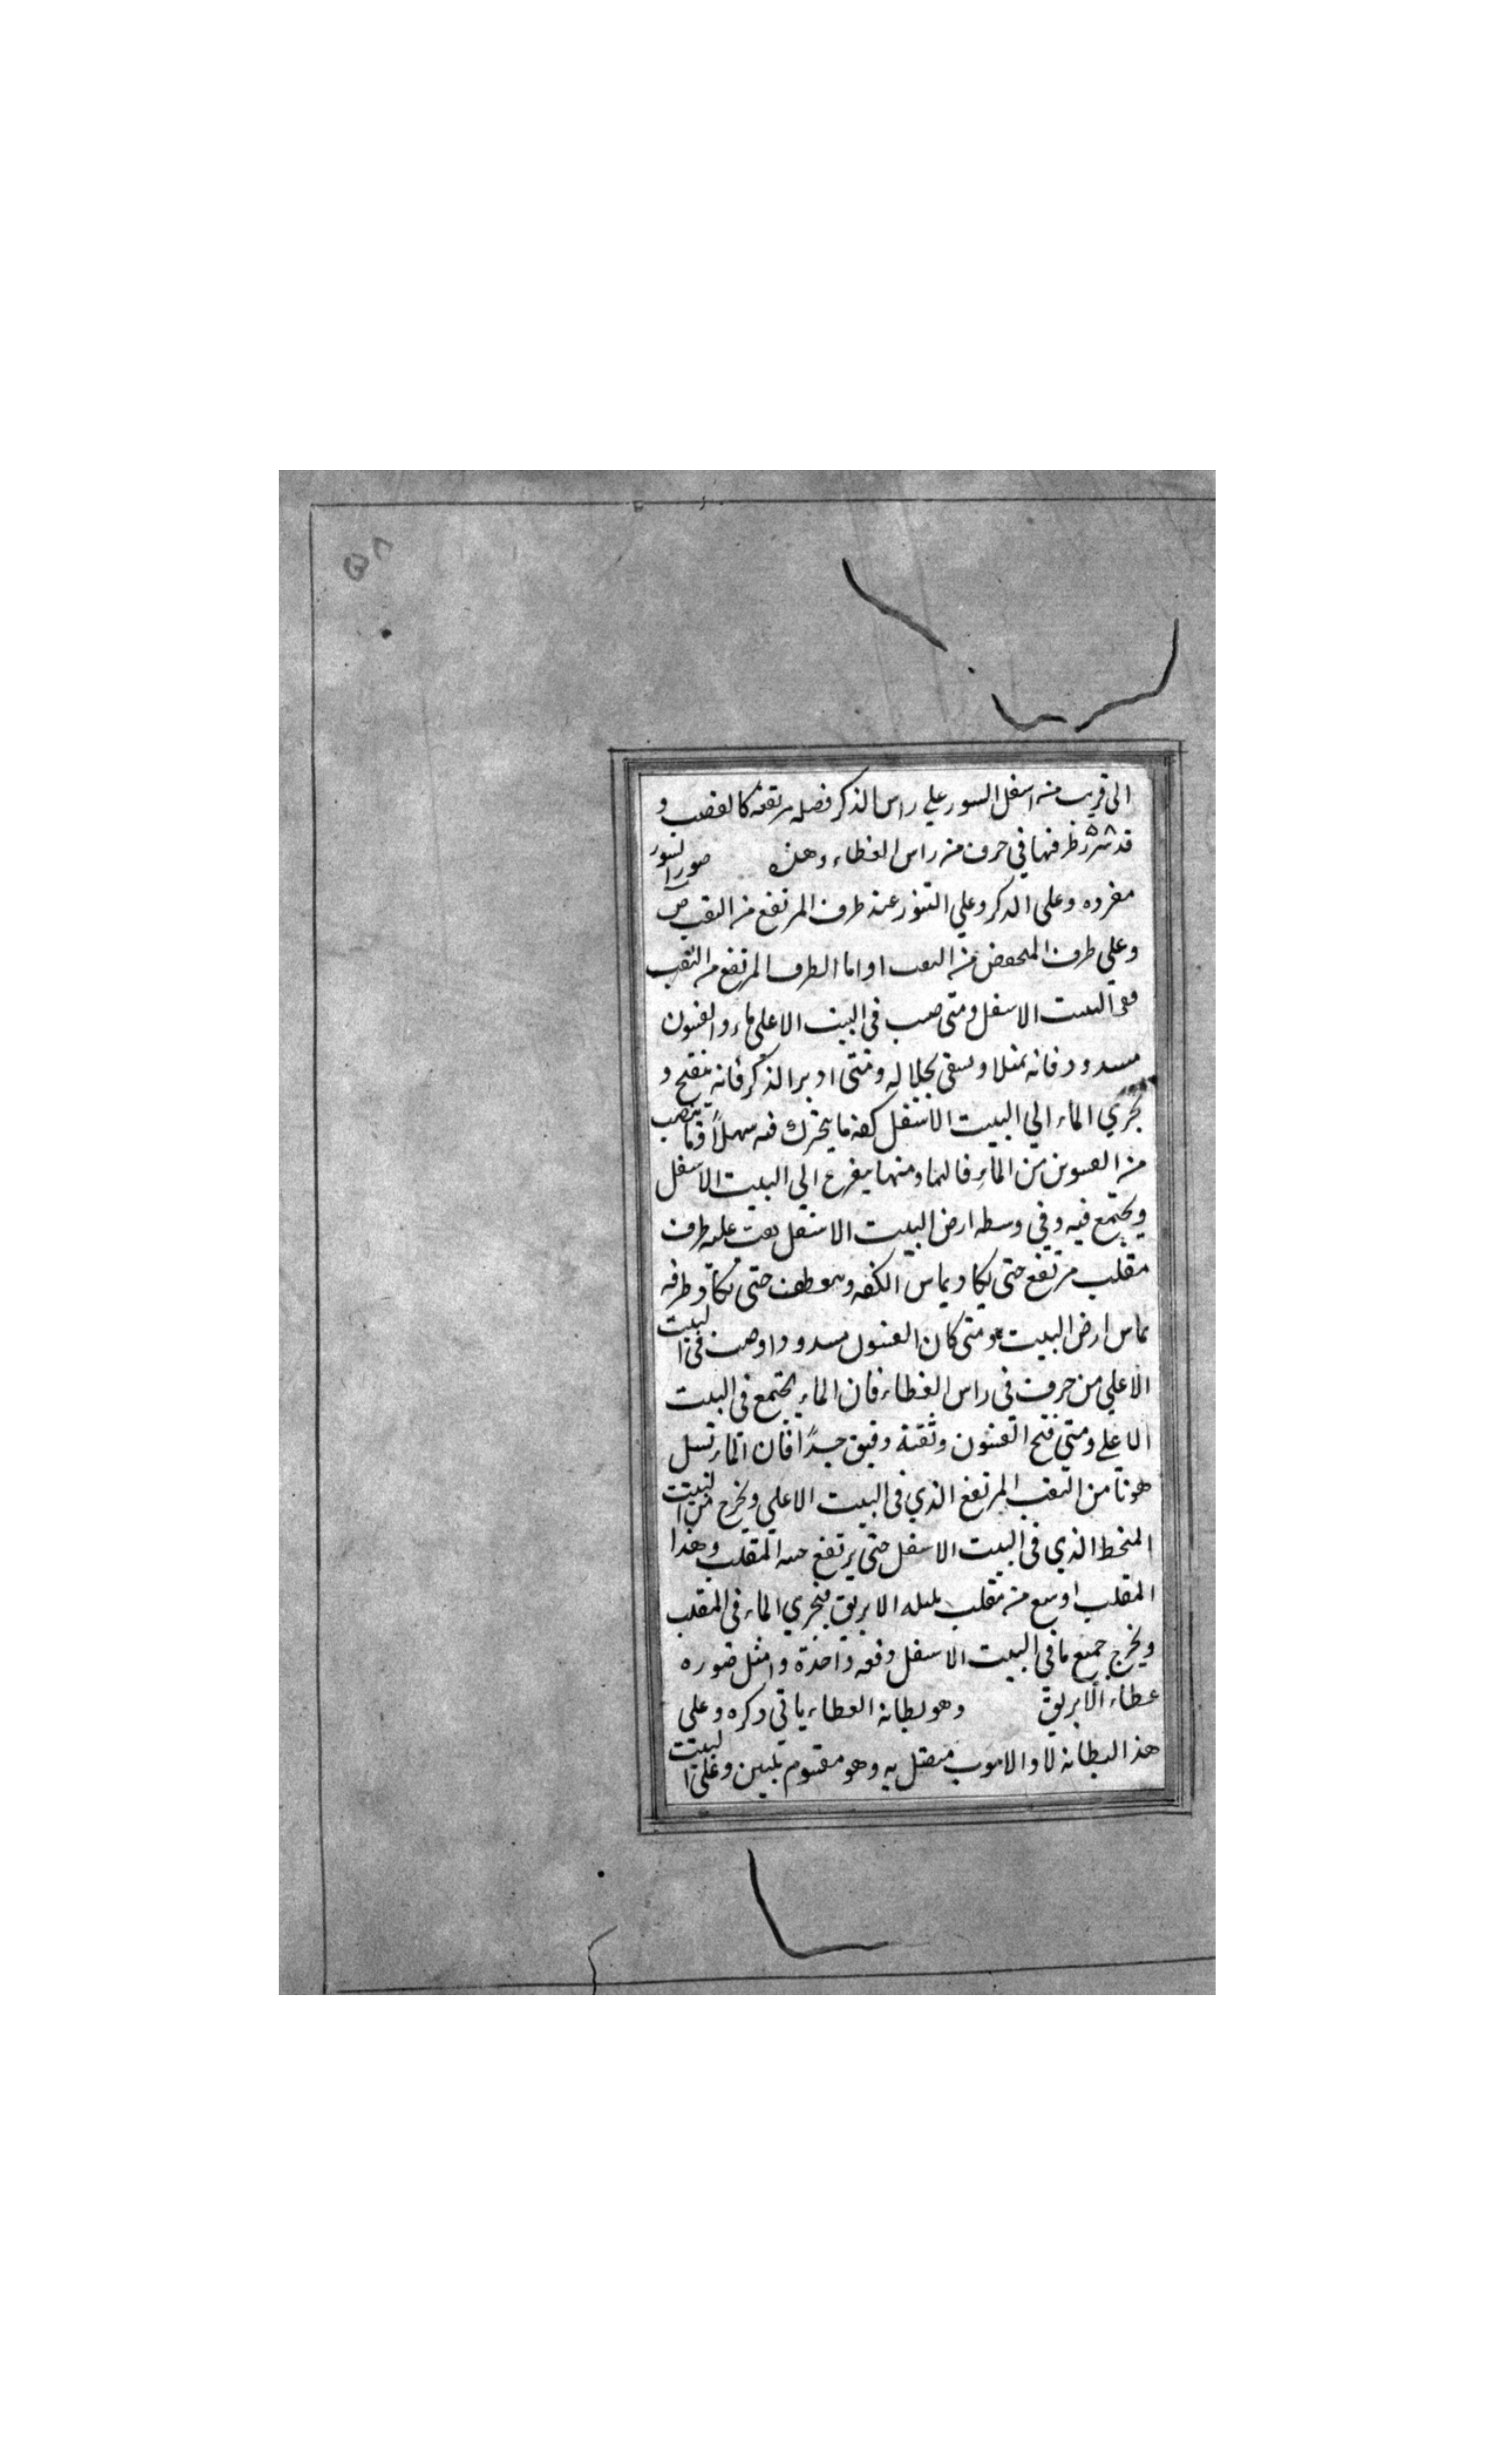 ٥٨
الى قريب منه اسفل السور علي راس الذكر فضله مرتفعه كالقضيب و
قد طرفها في حرف من راس الغطاء وهذه صوره التنور
مفرده وعلى الذكر وعلي التنور عند طرف المرتفع من الثقب ص
وعلي طرف المنخفض من الثقب ا واما الطرف المرتفع من الثقب
ففي البيت الاسفل ومتى صب في البيت الاعلى ماء والغيثون
مسدود فانه يمتلا ويبقى بحاله ومتى ادير الذكر فانه ينفتح و
يجري الماء الي البيت الاسفل كفه ما يتحرك فيه سهلاً فما ينصب
من الماء ومنها يفرغ الي البيت الاسفل
ويجتمع فيه وفي وسطه ارض البيت الاسفل عليه طرف
مقلب مرتفع حتى يكاد يماس الكفه ويعطف حتى يكاد طرفه
يماس ارض البيت ومتى كان الغيثون مسدودا وصب في البيت
الاعلي من حرف في راس الغطاء فان الماء يجتمع في البيت
الاعلي ومتى فتح الغيثون وثقبة دقيق جداً فان الماء تسل
هوناً من الثقب المرتفع الذي في البيت الاعلي ويخرج من البيت
المنحط الذي في البيت الاسفل حتى يرتفع المقلب وهذا
المقلب اوسع من مقلب بلبله الابريق فيجري الماء في المقلب
ويخرج جميع ما في البيت الاسفل دفعه واحدة وامثل صوره
غطاء الابريق وهو بطانة الغطاء ياتي ذكره وعلى
هذا البطانه لا والانبوب متصل به وهو مقسوم بيتين وعلى البيت